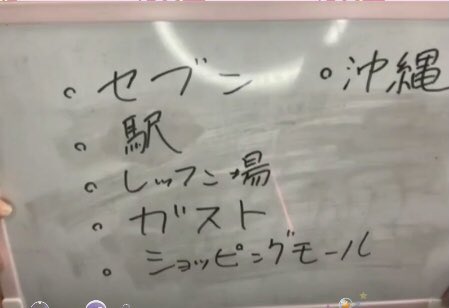 。セブン
。沖縄
。駅
。レッスン場
。ガスト
。ショッピングモール